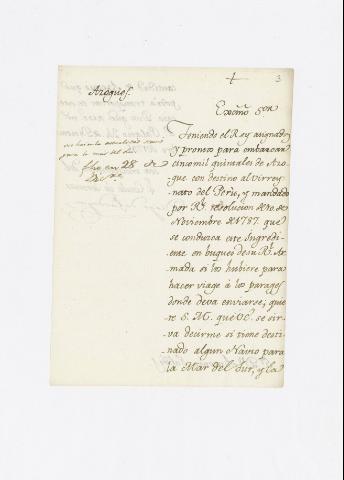 3
Azogues.
Exc̃mo Sor
Teniendo el Rey asignados
y prontos para embarcar
cinco mil quintales de Azo
gue con destino al Virrey
nato del Perù, y mandado
por Rl. resolucion de 10. de
Noviembre de 1787. que
se conduzca este Ingredi
ente en buques de su Rl. Ar
mada si los hubiere para
hacer viage à los parages
donde deva enviarse, quie
re S. M. que VE. se sir
va decirme si tiene desti
nado algun Navio para
la Mar del Sur, y la
para la mar del Sur.
fho en 28 de